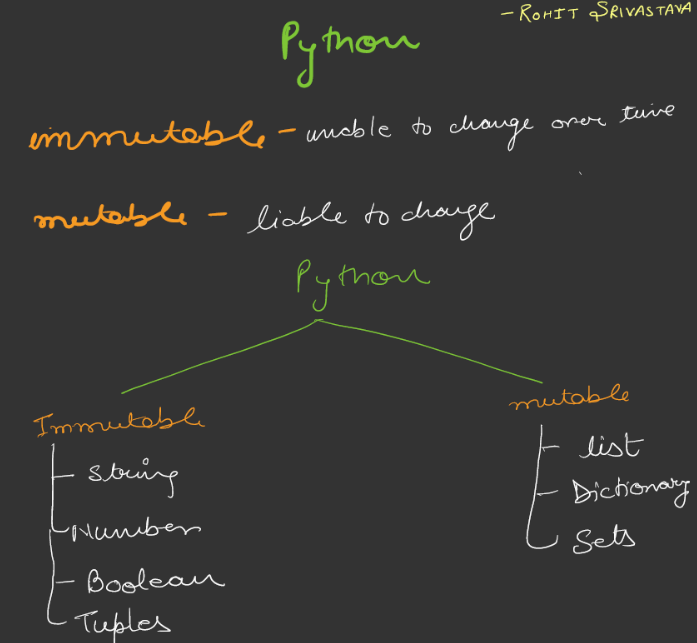 - ROHIT SRIVASTAVA
Python
immutable - unable to change over time
mutable - liable to change
Python
Immutable
String
Number
Boolean
Tuples
mutable
list
Dictionary
Sets